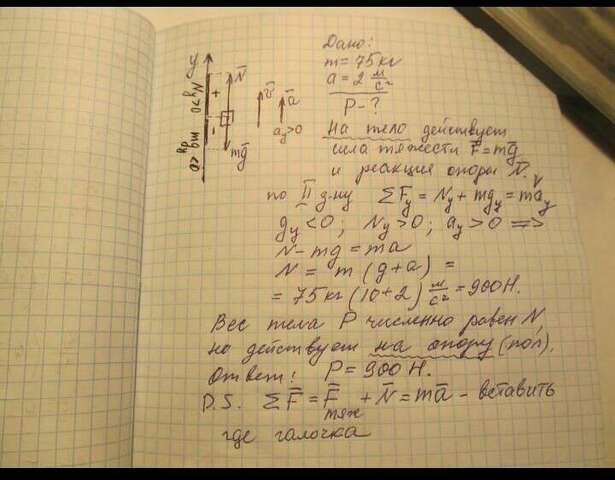 y
N̄
Ny>0
+
-
mgy<0
mḡ
v̄
ā
ay>0
Дано:
m = 75 кг
a = 2 м/с²
P - ?
На тело действует
сила тяжести F̄ = mḡ
и реакция опоры N̄. V
по II з-ну ΣFy = Ny + mgy = may
gy < 0 ; Ny > 0 ; ay > 0 =>
N - mg = ma
N = m (g + a) =
= 75 кг (10 + 2) м/с² = 900 Н.
Вес тела P численно равен N,
но действует на опору (пол).
Ответ: P = 900 Н.
P.S. ΣF̄ = F̄тяж + N̄ = mā - вставить
где галочка